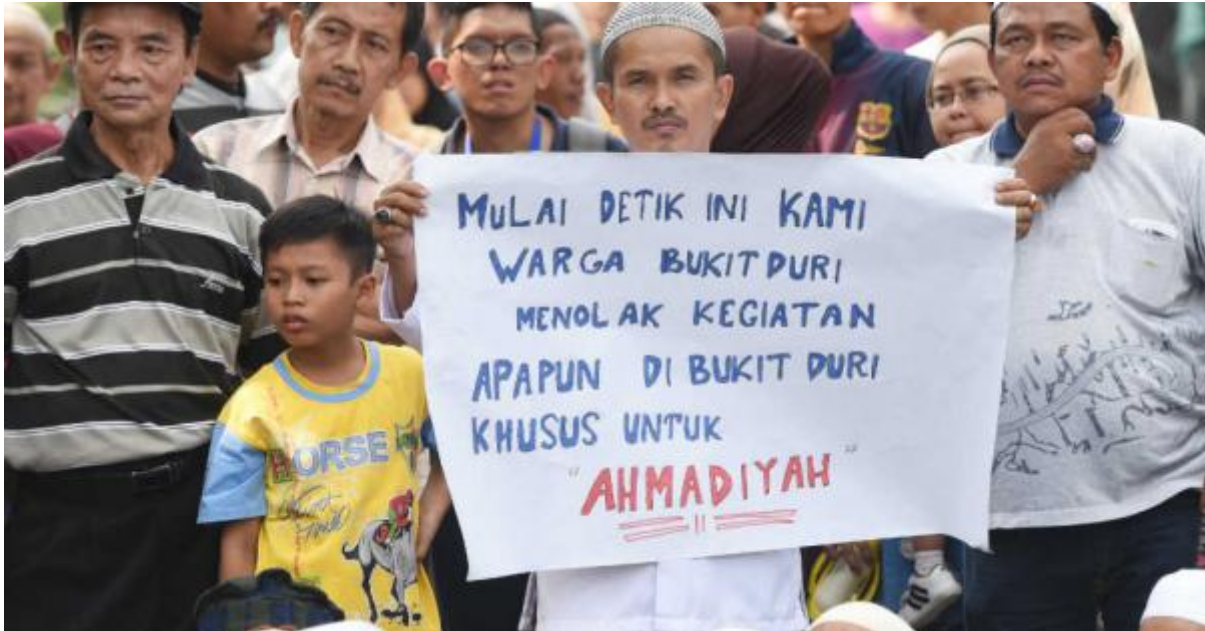 MULAI DETIK INI KAMI
WARGA BUKIT DURI
MENOLAK KEGIATAN
APAPUN DI BUKIT DURI
KHUSUS UNTUK
"AHMADIYAH"
HORSE